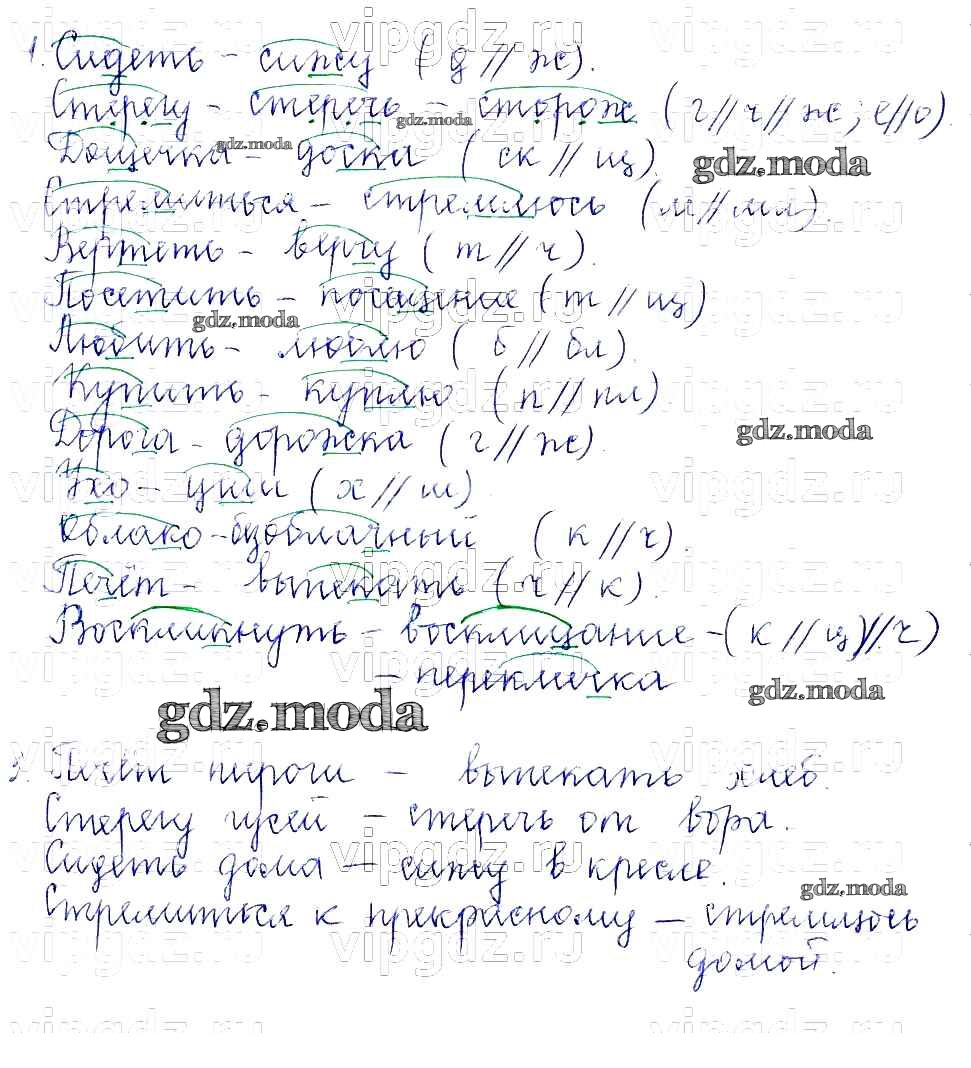 1. Сидеть - сижу (д // ж).
Стерегу - стеречь - сторож (г // ч // ж; е // о).
Дощечка - доска (ск // щ).
Стремиться - стремлюсь (м // мл).
Вертеть - верчу (т // ч).
Посетить - посещение (т // щ)
Любить - люблю (б // бл).
Купить - куплю (п // пл).
Дорога - дорожка (г // ж).
Ухо - уши (х // ш).
Облако - безоблачный (к // ч).
Печёт - выпекать (ч // к).
Воскликнуть - восклицание - (к // ц // ч)
- перекличка
gdz.moda
3. Печёт пироги - выпекать хлеб.
Стерегу гусей - стеречь от вора.
Сидеть дома - сижу в кресле.
Стремиться к прекрасному - стремлюсь
домой.